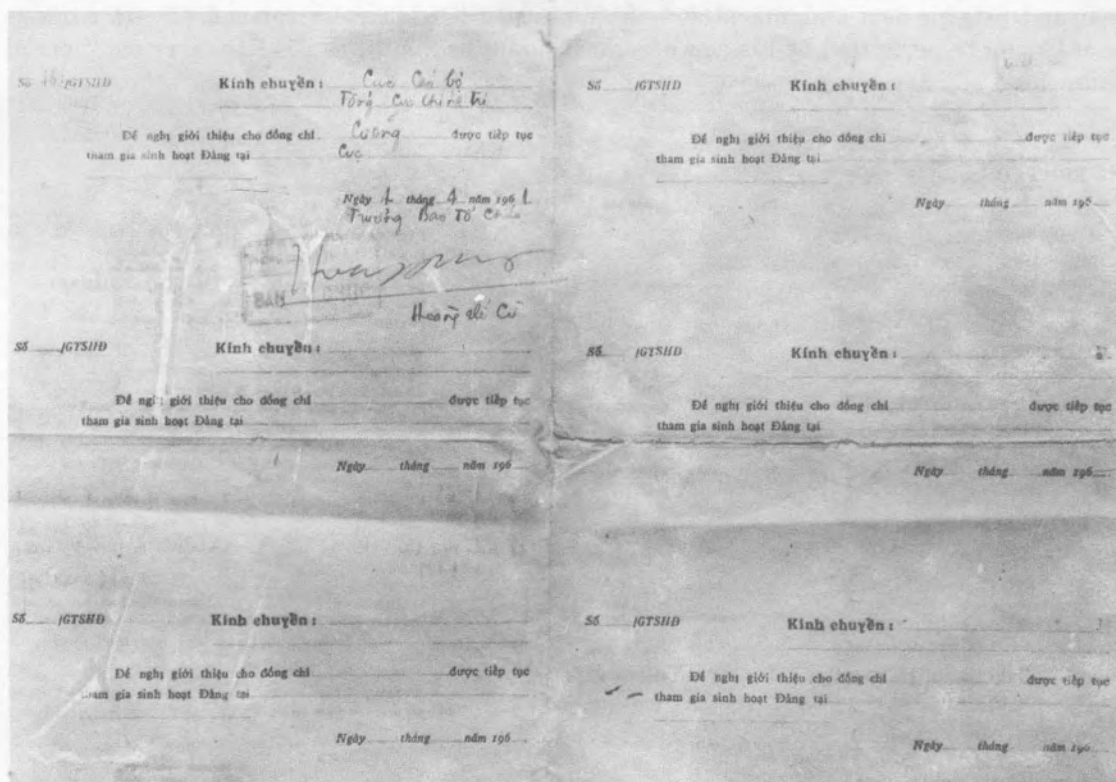 Số /GTSHD Kính chuyển : Cục Cán bộ
Tổng Cục Chính trị
Đề nghị giới thiệu cho đồng chí Cương được tiếp tục
tham gia sinh hoạt Đảng tại Cục
Ngày 1 tháng 4 năm 1961
Trưởng Ban Tổ Chức
BAN
Số /GTSHD Kính chuyển :
Đề nghị giới thiệu cho đồng chí được tiếp tục
tham gia sinh hoạt Đảng tại
Ngày tháng năm 196
Số /GTSHD Kính chuyển :
Đề nghị giới thiệu cho đồng chí được tiếp tục
tham gia sinh hoạt Đảng tại
Ngày tháng năm 196
Số /GTSHD Kính chuyển :
Đề nghị giới thiệu cho đồng chí được tiếp tục
tham gia sinh hoạt Đảng tại
Ngày tháng năm 196
Số /GTSHD Kính chuyển :
Đề nghị giới thiệu cho đồng chí được tiếp tục
tham gia sinh hoạt Đảng tại
Ngày tháng năm 196
Số /GTSHD Kính chuyển :
Đề nghị giới thiệu cho đồng chí được tiếp tục
tham gia sinh hoạt Đảng tại
Ngày tháng năm 196